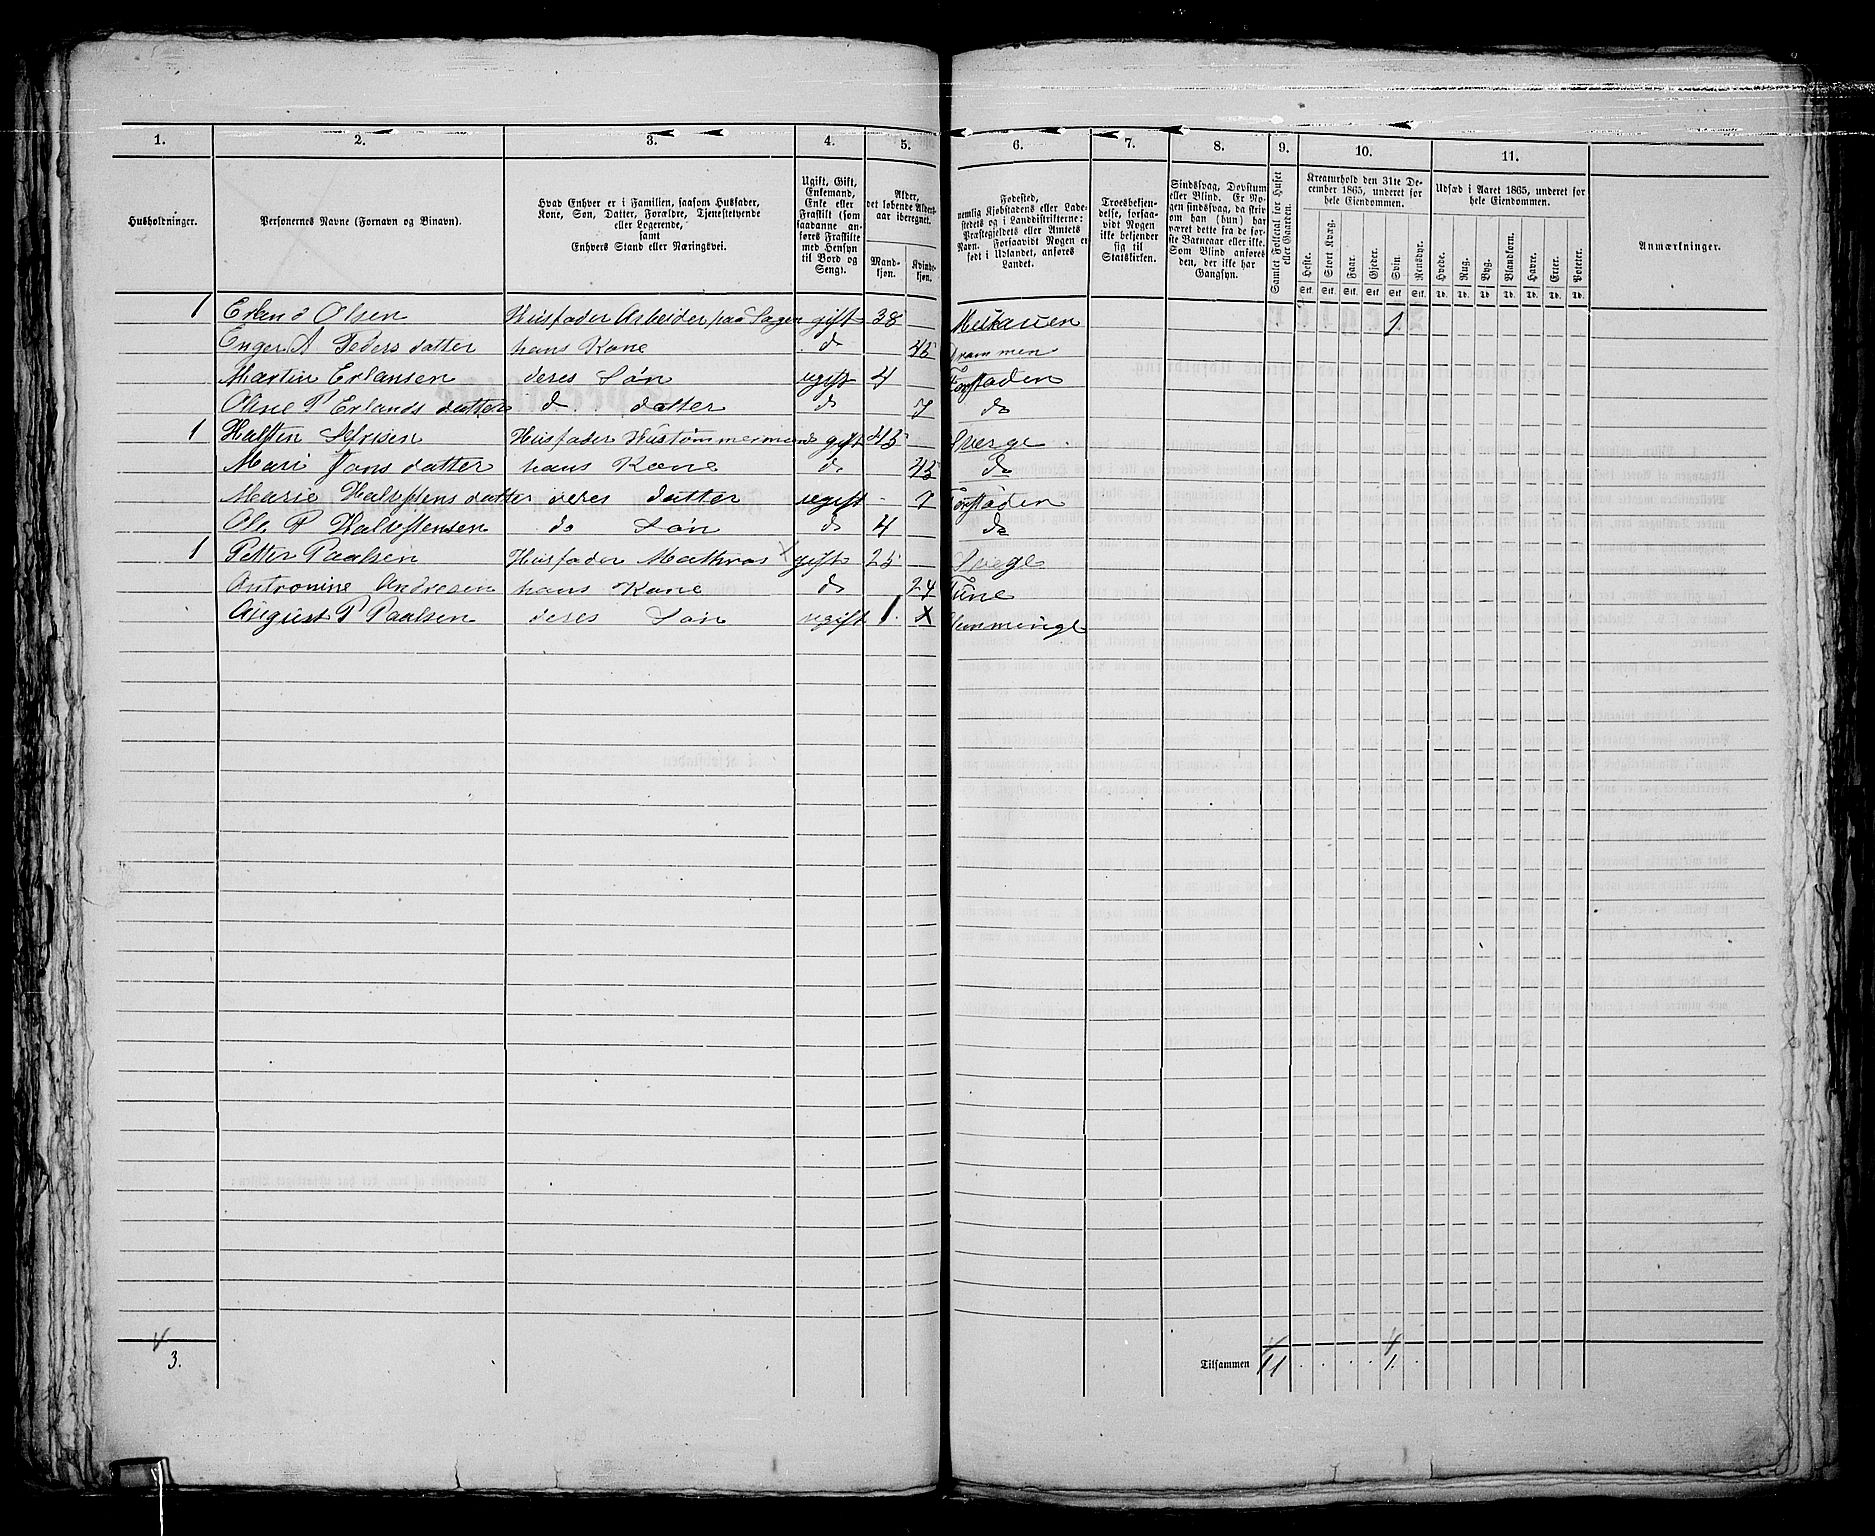 1. 2. 3. 4. 5. 6. 7. 8. 9. 10. 11.
Husholdninger.
Personernes Navne (Fornavn og Binavn).
Hvad Enhver er i Familien, saasom Husfader,
Kone, Søn, Datter, Forældre, Tjenestetyende
eller Logerende,
samt
Enhvers Stand eller Næringsvei.
Ugift, Gift,
Enkemand,
Enke eller
Fraskilt (som
saadanne an-
føres Fraskilte
med Hensyn
til Bord og
Seng).
Alder,
det løbende Alders-
aar iberegnet.
Mand-
kjøn.
Kvinde-
kjøn.
Fødested,
nemlig Kjøbstadens eller Lade-
stedets og i Landdistrikterne:
Præstegjeldets eller Amtets
Navn. Forsaavidt Nogen er
født i Udlandet, anføres
Landet.
Troesbekjen-
delse, forsaa-
vidt Nogen
ikke bekjender
sig til
Statskirken.
Sindssvag, Døvstum
eller Blind. Er No-
gen sindssvag, da skri-
ves om han (hun) har
været dette fra de før-
ste Barneaar eller ikke.
Som Blind anføres
den, der ikke har
Gangsyn.
Samlet Folketal for Huset
eller Gaarden.
Kreaturhold den 31te De-
cember 1865, underet for
hele Eiendommen.
Heste. Stort Kvæg. Faar. Gjeder. Svin. Rensdyr.
Stk. Stk. Stk. Stk. Stk. Stk.
Udsæd i Aaret 1865, underet for
hele Eiendommen.
Hvede. Rug. Byg. Blandkorn. Havre. Erter. Poteter.
Td. Td. Td. Td. Td. Td. Td.
Anmærkninger.
1 Erland Olsen Husfader Arbeider paa Sagen gift 38 1
Enger A Peders datter hans Kone do 45 Drammen
Martin Erlansen deres Søn ugift 4 Forstaden
Oline P Erlands datter do datter do 7 do
1 Halften Husfader Hustømmermand gift 45 Sverge
Mari Jons datter hans Kone do 45 do
Marie Halvstens datter deres datter ugift 7 Forstaden
Ole P Halvstensen do Søn do 4 do
1 Petter Paalsen Husfader Mathros gift 25 Svege
Antronine Andresen hans Kone do 24 Tune
August P Paalsen deres Søn ugift 1 x
3. Tilsammen 11 1.